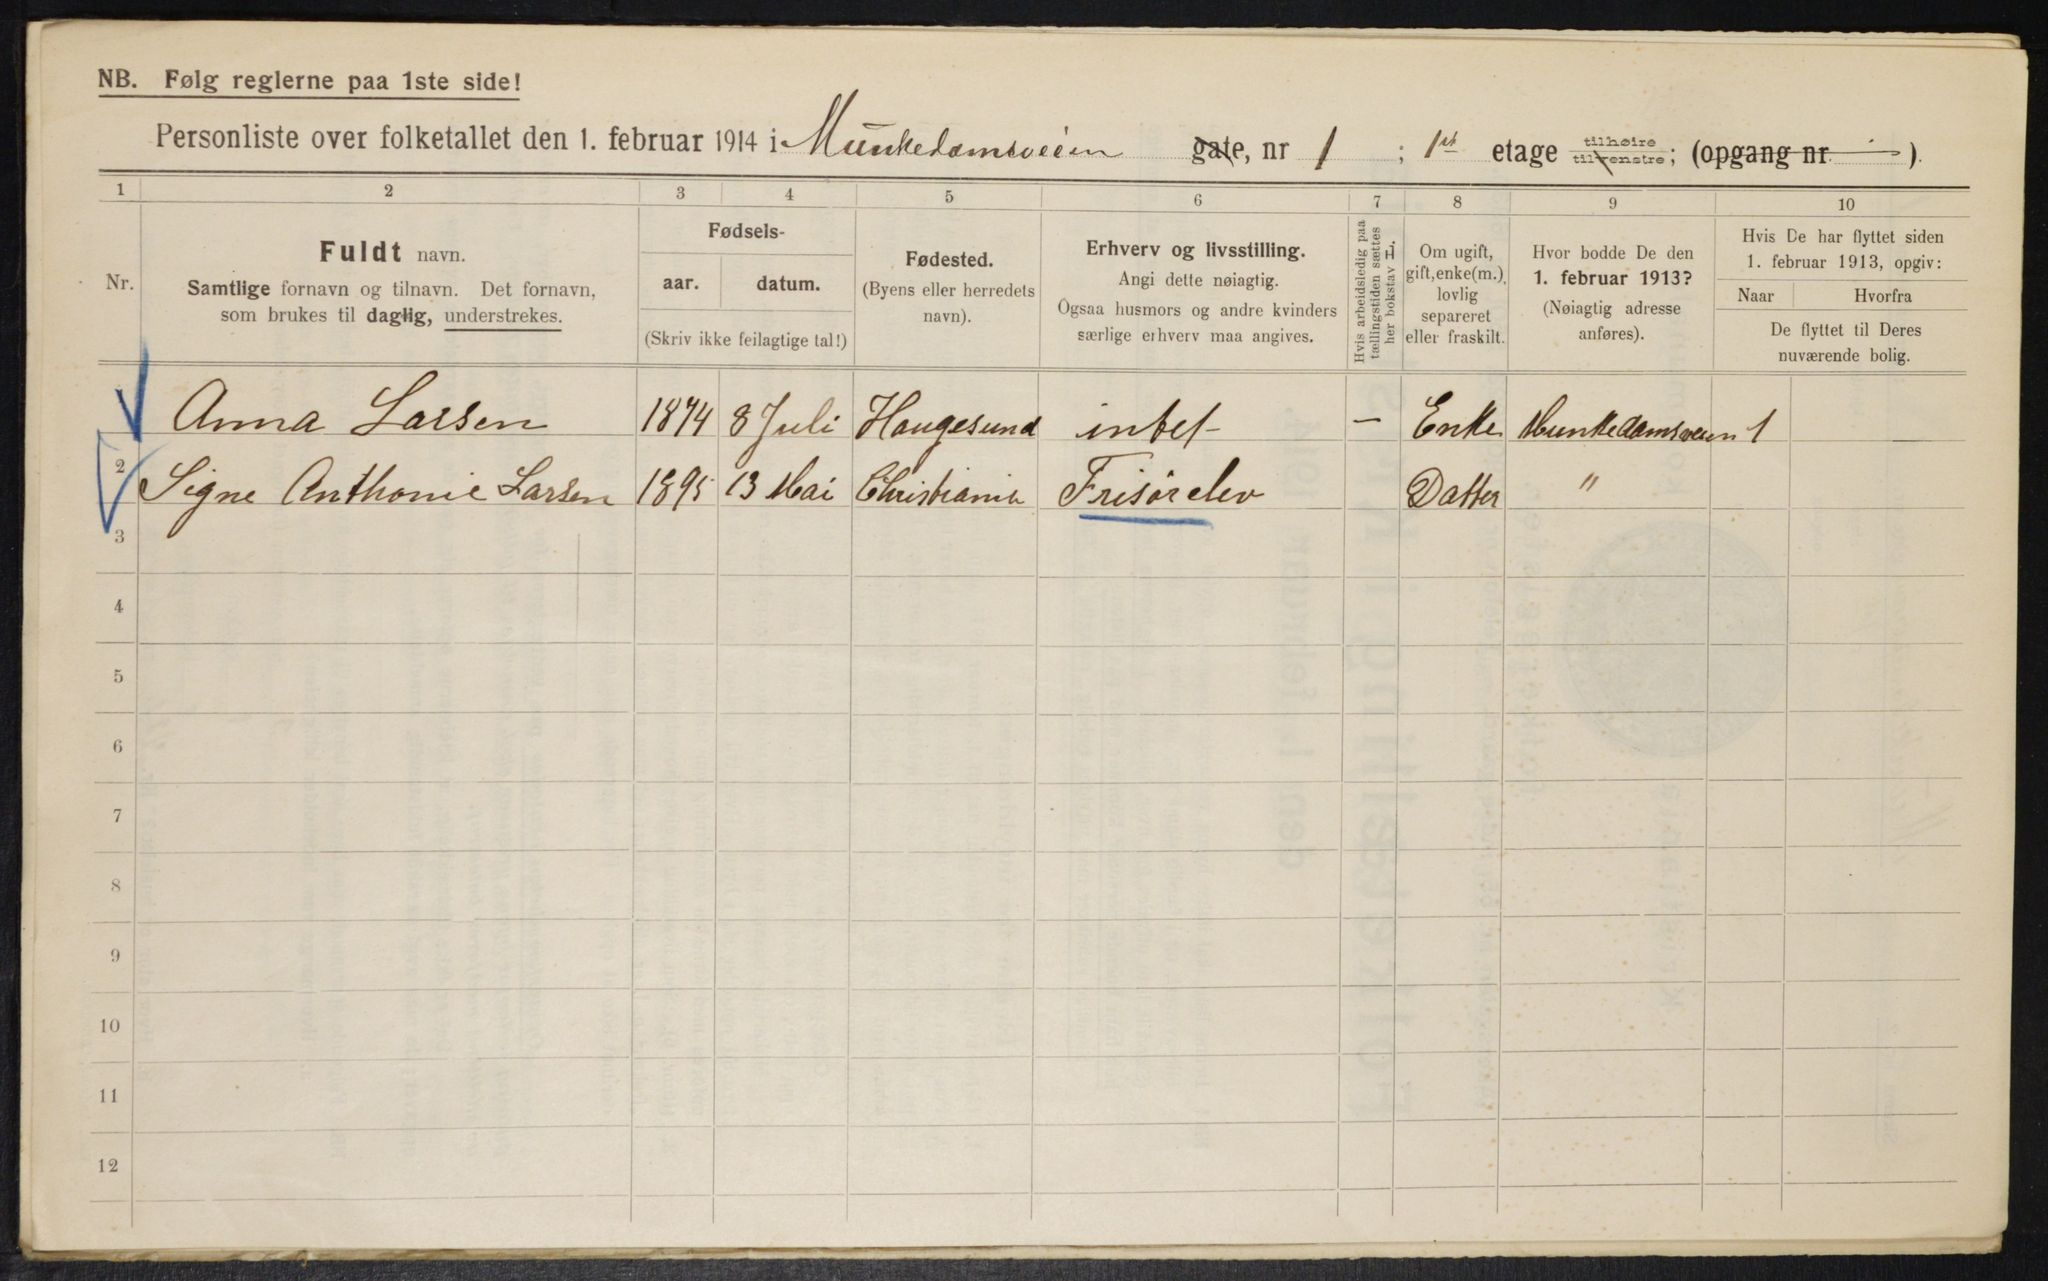 NB. Følg reglerne paa 1ste side!
Personliste over folketallet den 1. februar 1914 i Munkedamsveien gate, nr 1 ; 1st etage tilhøire tilvenstre; (opgang nr. ).
1 2 3 4 5 6 7 8 9 10
Nr.
Fuldt navn.
Samtlige fornavn og tilnavn. Det fornavn,
som brukes til daglig, understrekes.
Fødsels-
aar. datum.
(Skriv ikke feilagtige tal!)
Fødested.
(Byens eller herredets
navn).
Erhverv og livsstilling.
Angi dette nøiagtig.
Ogsaa husmors og andre kvinders
særlige erhverv maa angives.
Hvis arbeidsledig paa
tællingstiden sættes
her bokstav L.
Om ugift,
gift, enke(m.),
lovlig
separeret
eller fraskilt.
Hvor bodde De den
1. februar 1913?
(Nøiagtig adresse
anføres).
Hvis De har flyttet siden
1. februar 1913, opgiv:
Naar Hvorfra
De flyttet til Deres
nuværende bolig.
Anna Larsen 1874 8 Juli Haugesund intet - Enke Munkedamsveien 1
2 Signe Anthonie Larsen 1895 13 Mai Christiania Frisørelev Datter "
3
4
5
6
7
8
9
10
11
12